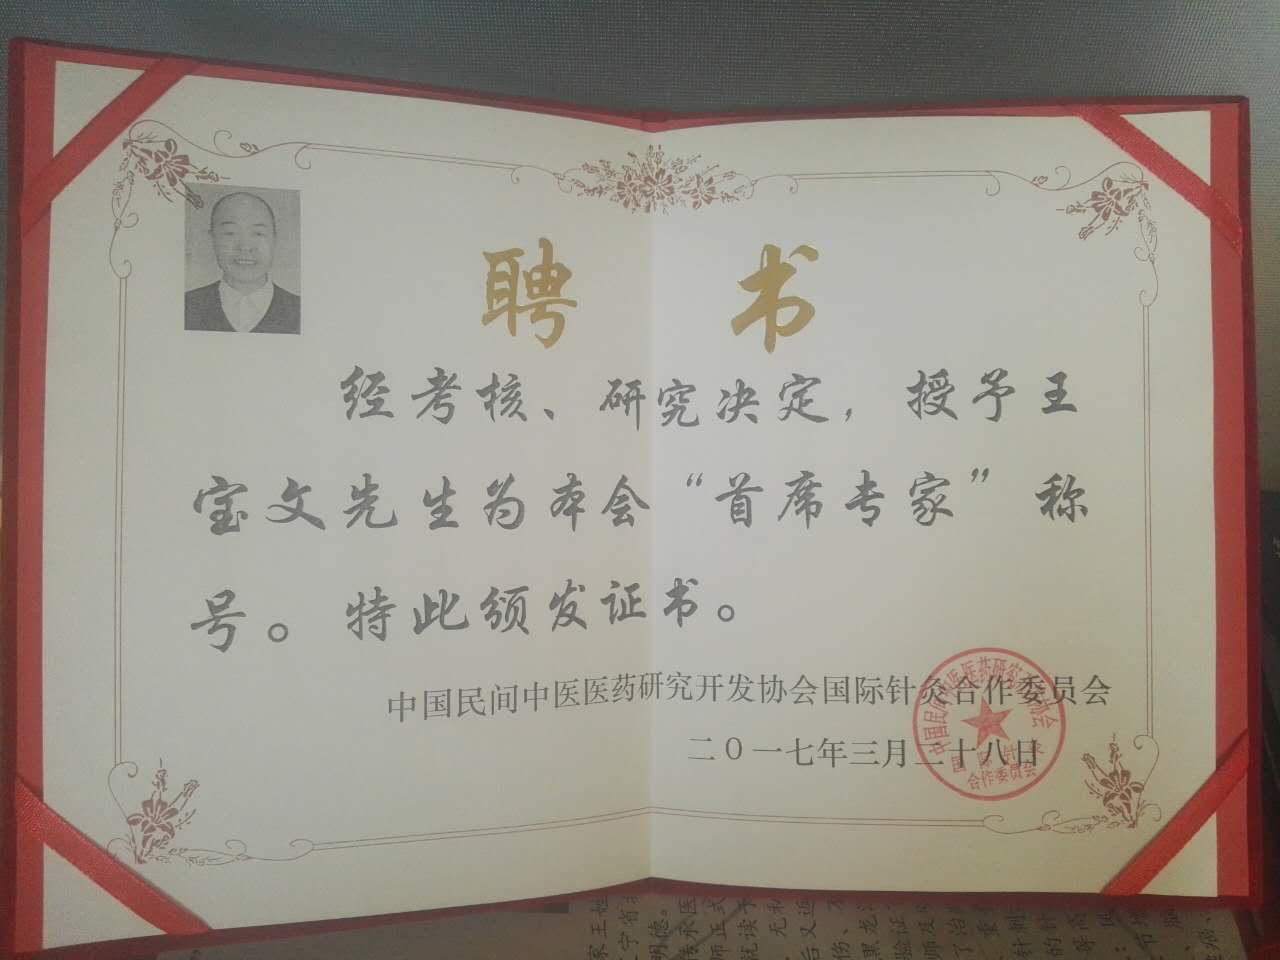 聘 书
经考核、研究决定，授予王
宝文先生为本会“首席专家”称
号。特此颁发证书。
中国民间中医医药研究开发协会国际针灸合作委员会
二〇一七年三月二十八日
中国民间中医医药研究开发协会
国际针灸
合作委员会